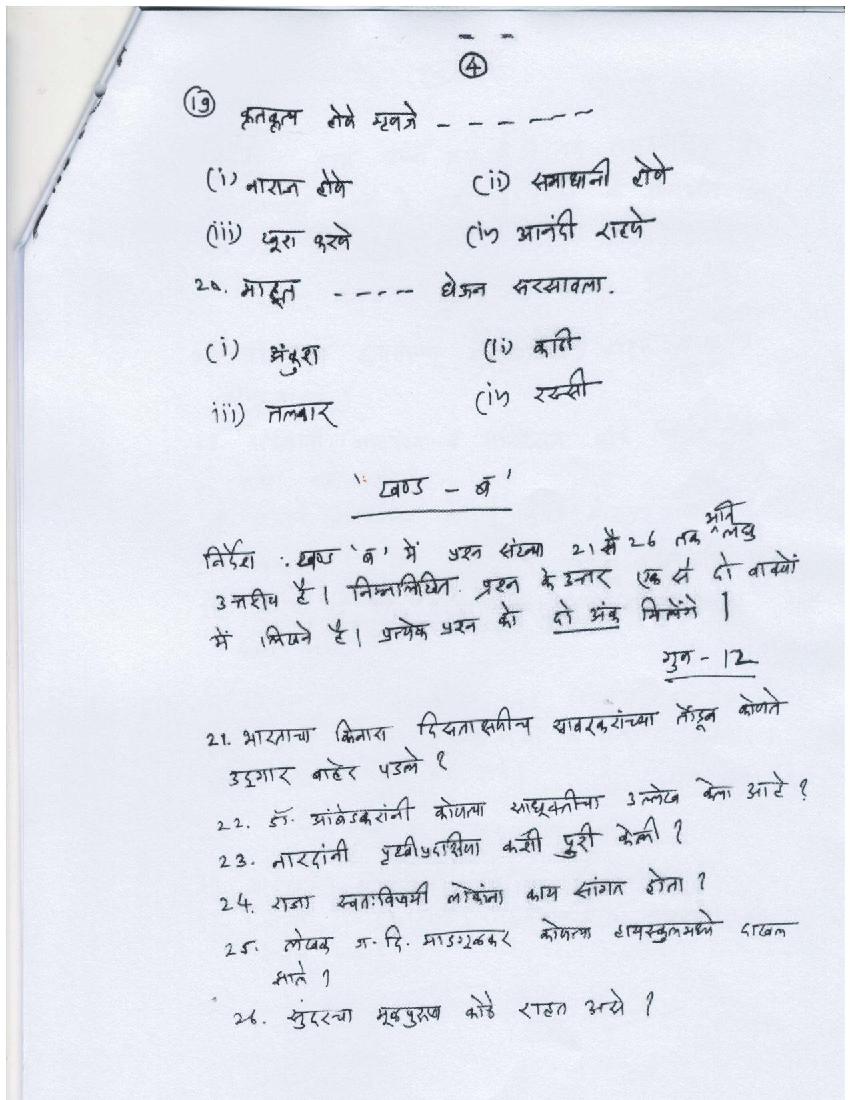 4
19 कृतकृत्य होणे म्हणजे - - - - - -
(i) नाराज होणे (ii) समाधानी होणे
(iii) चूरा करणे (iv) आनंदी राहणे
20. माहूत - - - - घेऊन सरसावला.
(i) अंकुश (ii) काठी
iii) तलवार (iv) रस्सी
'खण्ड - ब'
निर्देश : खण्ड 'ब' में प्रश्न संख्या 21 से 26 तक अति लघु
उत्तरीय है। निम्नलिखित प्रश्न के उत्तर एक से दो वाक्यों
में लिखने है। प्रत्येक प्रश्न को दो अंक मिलेंगे।
गुण - 12
21. भारताचा किनारा दिसताक्षणीच सावरकरांच्या तोंडून कोणते
उद्गार बाहेर पडले ?
22. डॉ. आंबेडकरांनी कोणत्या साधूक्तीचा उल्लेख केला आहे ?
23. नारदांनी पृथ्वीप्रदक्षिणा कशी पुरी केली ?
24. राजा स्वतःविषयी लोकांना काय सांगत होता ?
25. लेखक ग. दि. माडगूळकर कोणत्या हायस्कुलमध्ये दाखल
झाले ?
26. सुंदरचा मूळपुरुष कोठे राहत असे ?